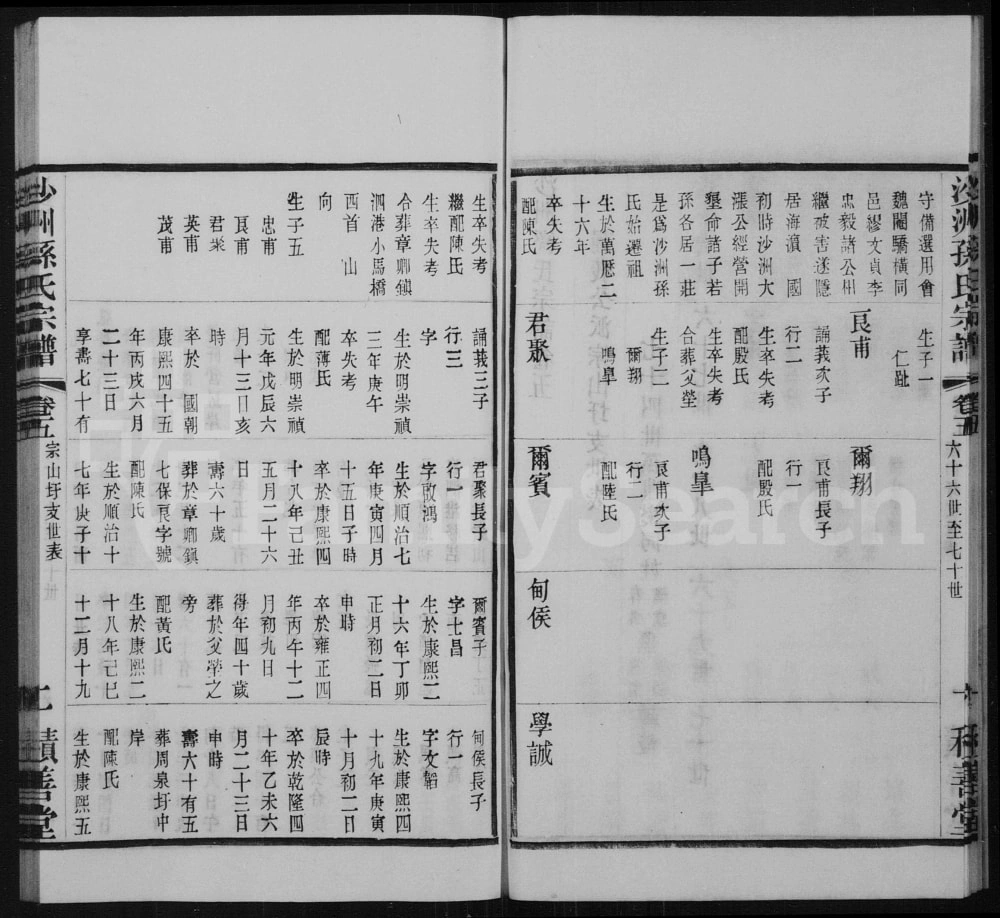 沙洲孫氏宗譜
卷五
六十六世至七十世
十
積善堂
守備選用會
魏閹驕橫同
邑繆文貞李
忠毅諸公州
繼被害遂隱
居海濱 國
初時沙洲大
漲公經營開
墾命諸子若
孫各居一莊
是為沙洲孫
氏始遷祖
生於萬厯二
十六年
卒失考
配陳氏
生子一
仁趾
艮甫
誦莪次子
行二
生卒失考
配殷氏
生卒失考
合葬父塋
生子二
爾翔
鳴臯
君聚
爾翔
艮甫長子
行一
配殷氏
鳴臯
艮甫次子
行二
配陸氏
爾賓
甸侯
學誠
生卒失考
繼配陳氏
生卒失考
合葬章卿鎮
泗港小馬橋
西首 山
向
生子五
忠甫
艮甫
君聚
英甫
茂甫
誦莪三子
行三
字
生於明崇禎
三年庚午
卒失考
配薄氏
生於明崇禎
元年戊辰六
月十三日亥
時
卒於 國朝
康熙四十五
年丙戌六月
二十三日
享壽七十有
君聚長子
行一
字啟鴻
生於順治七
年庚寅四月
十五日子時
卒於康熙四
十八年己丑
五月二十六
日
壽六十歲
葬於章卿鎮
七保艮字號
配陳氏
生於順治十
七年庚子十
爾賓子
字士昌
生於康熙二
十六年丁卯
正月初二日
申時
卒於雍正四
年丙午十二
月初九日
得年四十歲
葬於父塋之
旁
配黃氏
生於康熙二
十八年己巳
十二月十九
甸侯長子
行一
字文韜
生於康熙四
十九年庚寅
十月初二日
辰時
卒於乾隆四
十年乙未六
月二十三日
申時
壽六十有五
葬周泉圩中
岸
配陳氏
生於康熙五
沙洲孫氏宗譜
卷五
宗山圩支世表
十世
積善堂